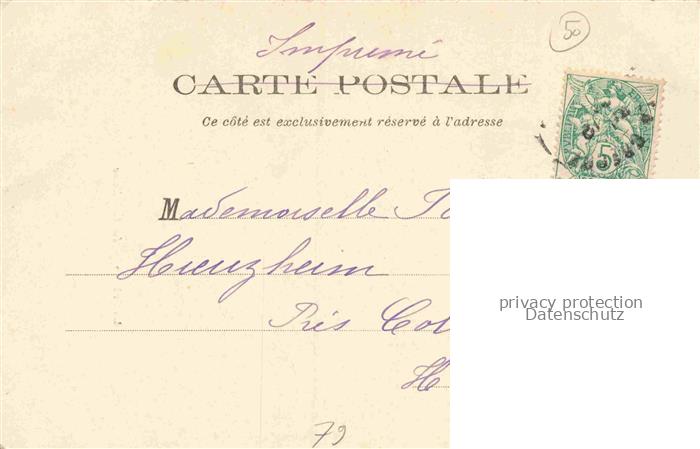 50
Imprimé
CARTE POSTALE
Ce côté est exclusivement réservé à l'adresse
5
Mademoiselle
Près Col
H
privacy protection
Datenschutz
79